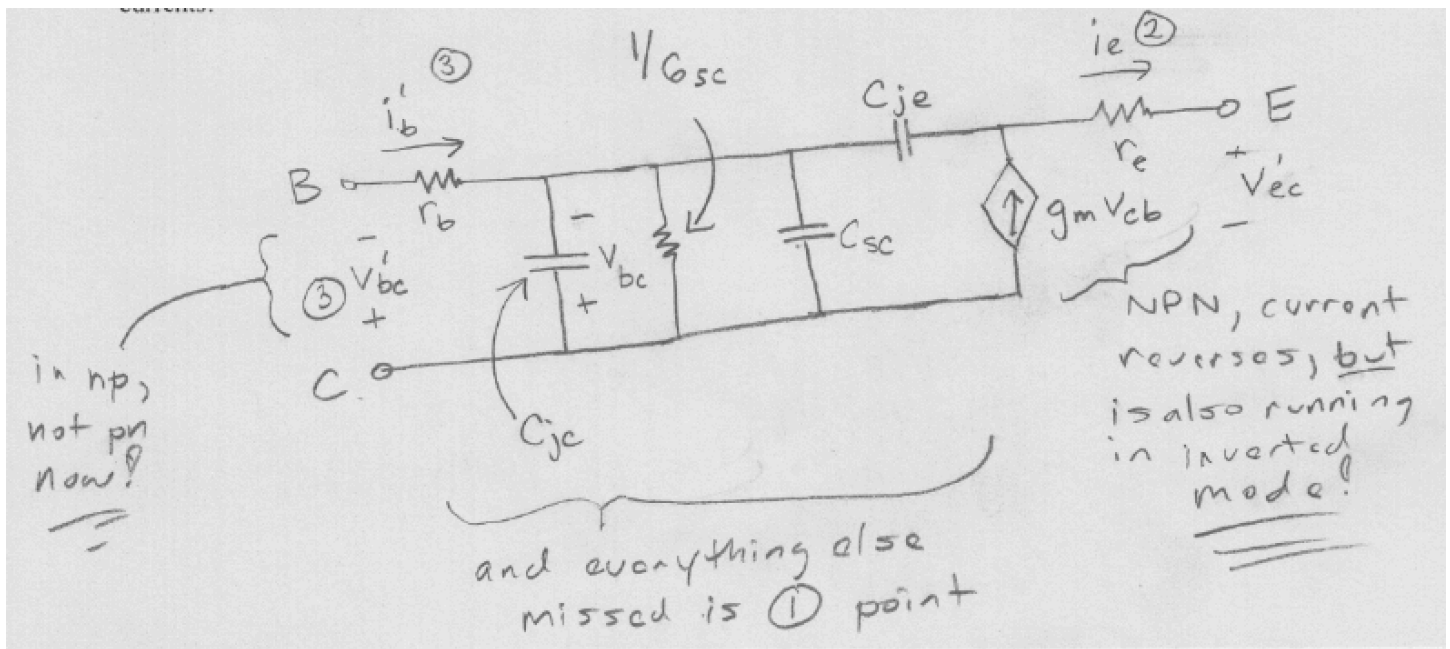 currents.
i'b ③
1/Gsc
ie ②
Cje
E
re
B
rb
+
V'ec
-
gm Vcb
-
Vbc
+
Csc
-
③ V'bc
+
C
Cjc
in np,
not pn
now!
NPN, current
reverses, but
is also running
in inverted
mode!
and everything else
missed is ① point